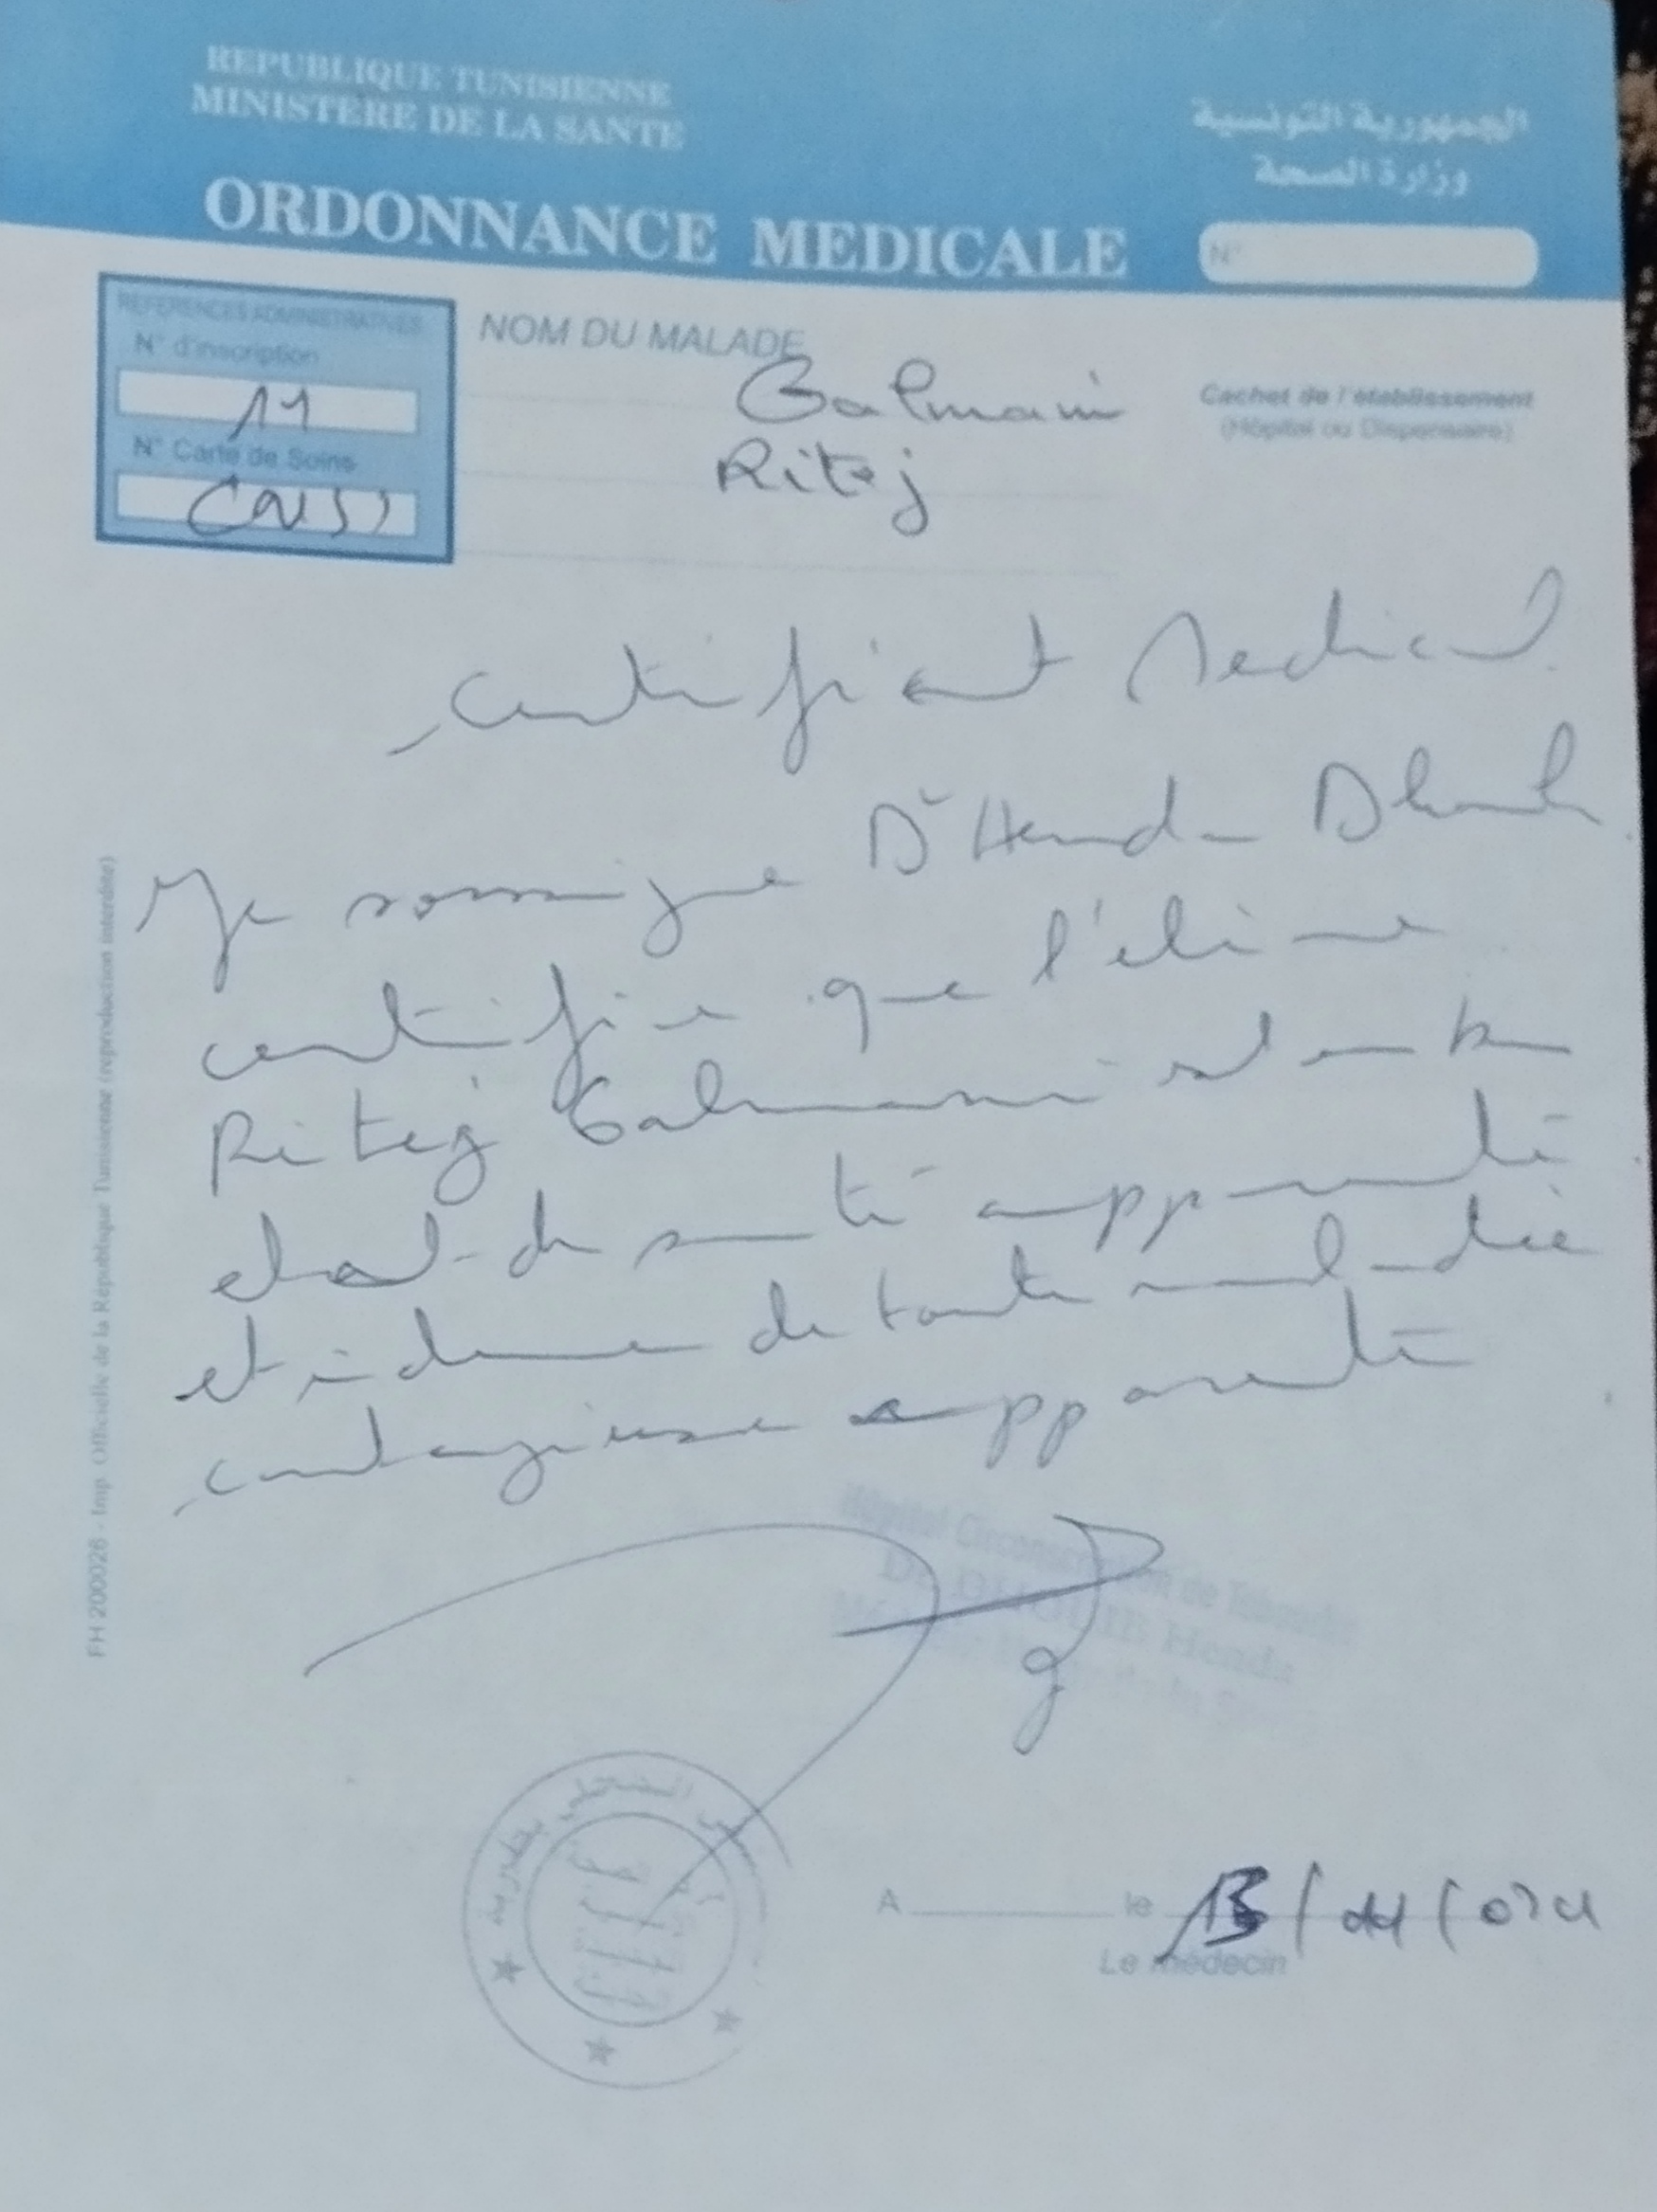 REPUBLIQUE TUNISIENNE
MINISTERE DE LA SANTE
الجمهورية التونسية
وزارة الصحة
ORDONNANCE MEDICALE
N°
REFERENCES ADMINISTRATIVES
N° d'inscription
11
N° Carte de Soins
NOM DU MALADE
Galmami
Ritej
Cachet de l'établissement
(Hôpital ou Dispensaire)
certificat Medical
Je soussigne Dr Henda
certifie que l'élève
Ritej Galmami est en bon
etat de santé apparente
et indemne de toute maladie
contagieuse apparente
Hôpital Circonscription de
Dr Henda
A le 13/11/
Le médecin
FH 200026 - Imp. Officielle de la République Tunisienne (reproduction interdite)